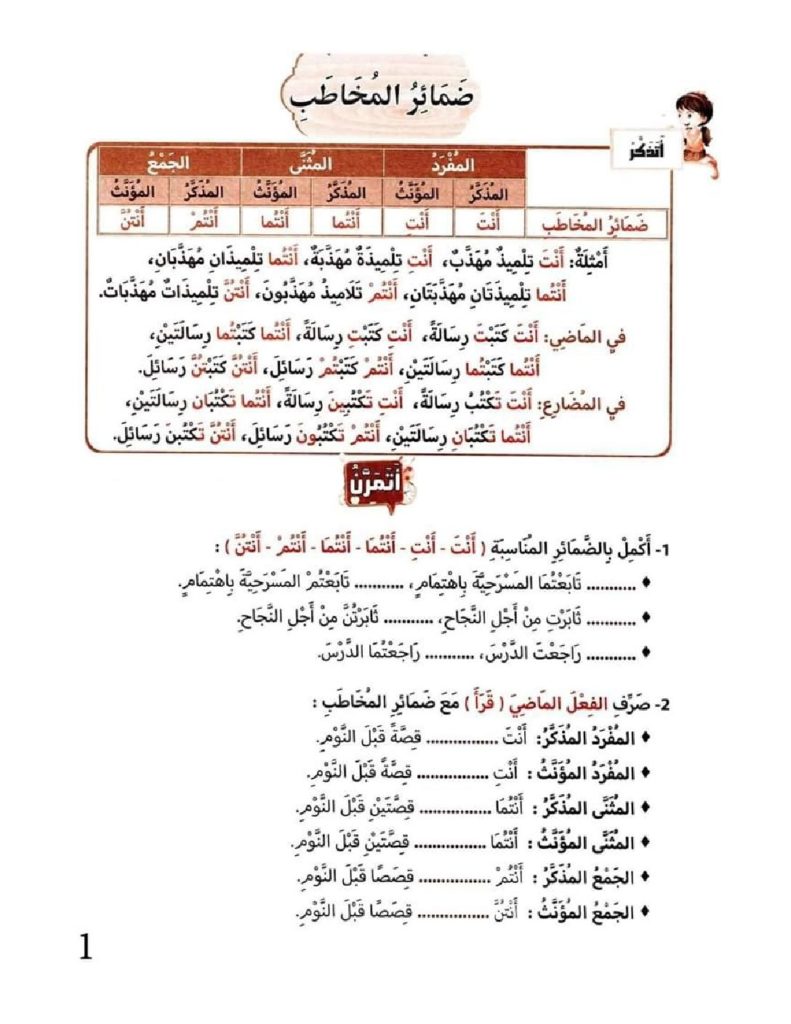 ضَمَائِرُ المُخَاطَبِ
أَتَذَكَّرُ
المُفْرَدُ المُثَنَّى الجَمْعُ
المُذَكَّرُ المُؤَنَّثُ المُذَكَّرُ المُؤَنَّثُ المُذَكَّرُ المُؤَنَّثُ
ضَمَائِرُ المُخَاطَبِ أَنْتَ أَنْتِ أَنْتُما أَنْتُما أَنْتُمْ أَنْتُنَّ
أَمْثِلَةٌ: أَنْتَ تِلْمِيذٌ مُهَذَّبٌ، أَنْتِ تِلْمِيذَةٌ مُهَذَّبَةٌ، أَنْتُما تِلْمِيذَانِ مُهَذَّبَانِ،
أَنْتُما تِلْمِيذَتَانِ مُهَذَّبَتَانِ، أَنْتُمْ تَلَامِيذُ مُهَذَّبُونَ، أَنْتُنَّ تِلْمِيذَاتٌ مُهَذَّبَاتٌ.
في المَاضي: أَنْتَ كَتَبْتَ رِسَالَةً، أَنْتِ كَتَبْتِ رِسَالَةً، أَنْتُما كَتَبْتُما رِسَالَتَيْنِ،
أَنْتُما كَتَبْتُما رِسَالَتَيْنِ، أَنْتُمْ كَتَبْتُمْ رَسَائِلَ، أَنْتُنَّ كَتَبْتُنَّ رَسَائِلَ.
في المُضَارِعِ: أَنْتَ تَكْتُبُ رِسَالَةً، أَنْتِ تَكْتُبِينَ رِسَالَةً، أَنْتُما تَكْتُبَانِ رِسَالَتَيْنِ،
أَنْتُما تَكْتُبَانِ رِسَالَتَيْنِ، أَنْتُمْ تَكْتُبُونَ رَسَائِلَ، أَنْتُنَّ تَكْتُبْنَ رَسَائِلَ.
أَتَمَرَّنُ
1- أَكْمِلْ بِالضَّمَائِرِ المُنَاسِبَةِ ( أَنْتَ - أَنْتِ - أَنْتُمَا - أَنْتُمَا - أَنْتُمْ - أَنْتُنَّ ) :
♦ ........... تَابَعْتُمَا المَسْرَحِيَّةَ بِاهْتِمَامٍ، ........... تَابَعْتُمْ المَسْرَحِيَّةَ بِاهْتِمَامٍ.
♦ ........... ثَابَرْتِ مِنْ أَجْلِ النَّجَاحِ، ........... ثَابَرْتُنَّ مِنْ أَجْلِ النَّجَاحِ.
♦ ........... رَاجَعْتَ الدَّرْسَ، ........... رَاجَعْتُمَا الدَّرْسَ.
2- صَرِّفِ الفِعْلَ المَاضِيَ ( قَرَأَ ) مَعَ ضَمَائِرِ المُخَاطَبِ :
♦ المُفْرَدُ المُذَكَّرُ: أَنْتَ ................ قِصَّةً قَبْلَ النَّوْمِ.
♦ المُفْرَدُ المُؤَنَّثُ : أَنْتِ ................ قِصَّةً قَبْلَ النَّوْمِ.
♦ المُثَنَّى المُذَكَّرُ : أَنْتُمَا ................ قِصَّتَيْنِ قَبْلَ النَّوْمِ.
♦ المُثَنَّى المُؤَنَّثُ : أَنْتُمَا ................ قِصَّتَيْنِ قَبْلَ النَّوْمِ.
♦ الجَمْعُ المُذَكَّرُ : أَنْتُمْ ................ قِصَصًا قَبْلَ النَّوْمِ.
♦ الجَمْعُ المُؤَنَّثُ : أَنْتُنَّ ................ قِصَصًا قَبْلَ النَّوْمِ.
1